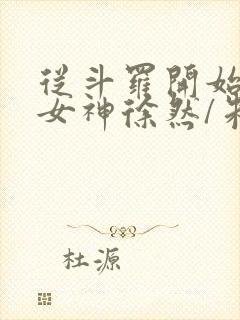 從斗羅開始
女神徐然/朱
杜源